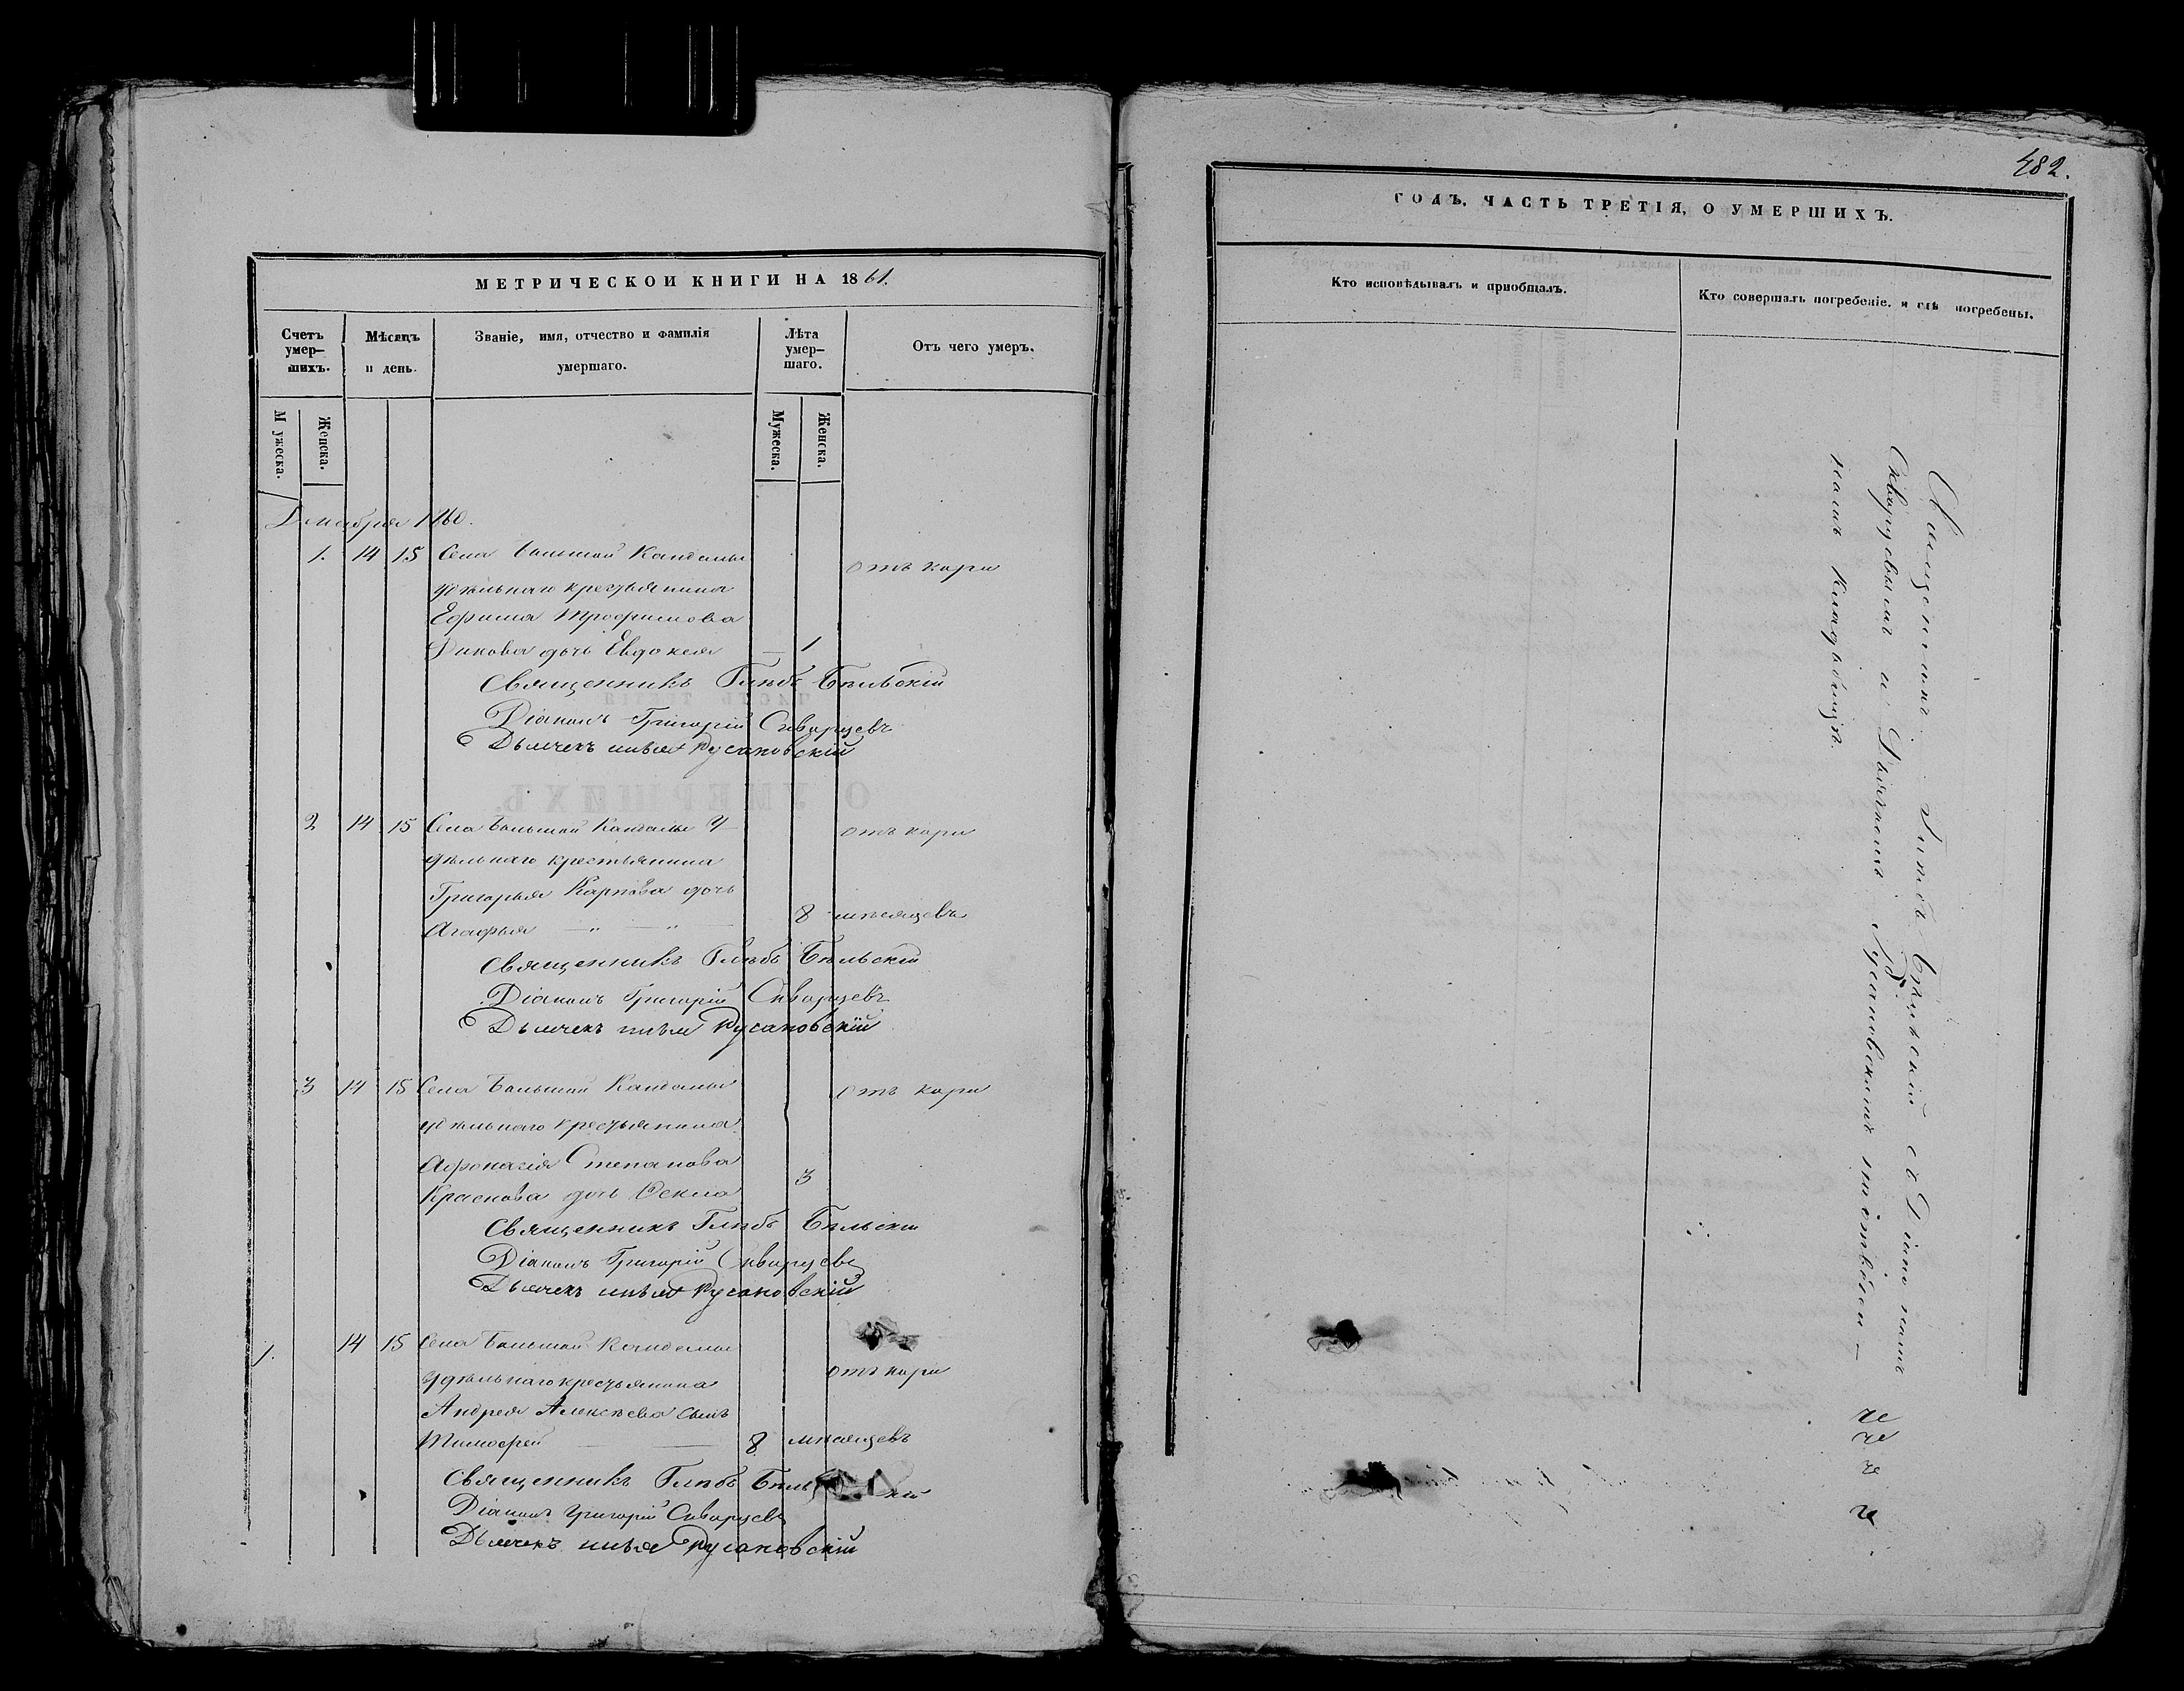 МЕТРИЧЕСКОЙ КНИГИ НА 1861.
Счетъ умер-шихъ.
Мѣсяцъ и день.
Званіе, имя, отчество и фамилія умершаго.
Лѣта умер-шаго.
Отъ чего умеръ.
Мужеска.
Женска.
Мужеска.
Женска.
Декабря 1860.
1. 14 15 Села Большой Кандалы отъ кори
удѣльнаго крестьянина
Ефима Трофимова
Дикова дочь Евдокея — 1
Священникъ Глѣбъ Бѣльскій
Діаконъ Григорій Скворцевъ
Дьячекъ Русановскій
2 14 15 Села Большой Кандалы У- отъ кори
дѣльнаго крестьянина
Григорья Карпова дочь
Агафья — „ — „ — 8 мѣсяцевъ
Священникъ Глѣбъ Бѣльскій
Діаконъ Григорій Скворцевъ
Дьячекъ Русановскій
3 14 15 Села Большой Кандалы отъ кори
удѣльнаго крестьянина
Афонасія Степанова 3
Краснова дочь Ѳекла
Священникъ Глѣбъ Бѣльскій
Діаконъ Григорій Скворцевъ
Дьячекъ Русановскій
1. 14 15 Села Большой Кандалы
удѣльнаго крестьянина отъ кори
Андрея Алексѣева сынъ
Тимофей — — 8 мѣсяцевъ
Священникъ Глѣбъ Бѣльскій
Діаконъ Григорій Скворцевъ
Дьячекъ Русановскій
482.
ГОДЪ, ЧАСТЬ ТРЕТІЯ, О УМЕРШИХЪ.
Кто исповѣдывалъ и приобщалъ.
Кто совершалъ погребеніе, и гдѣ погребены.
Священникъ Глѣбъ Бѣльскій съ Діакономъ
Скворцевымъ и Дьячкомъ Русановскимъ на общемъ
кладбищѣ.